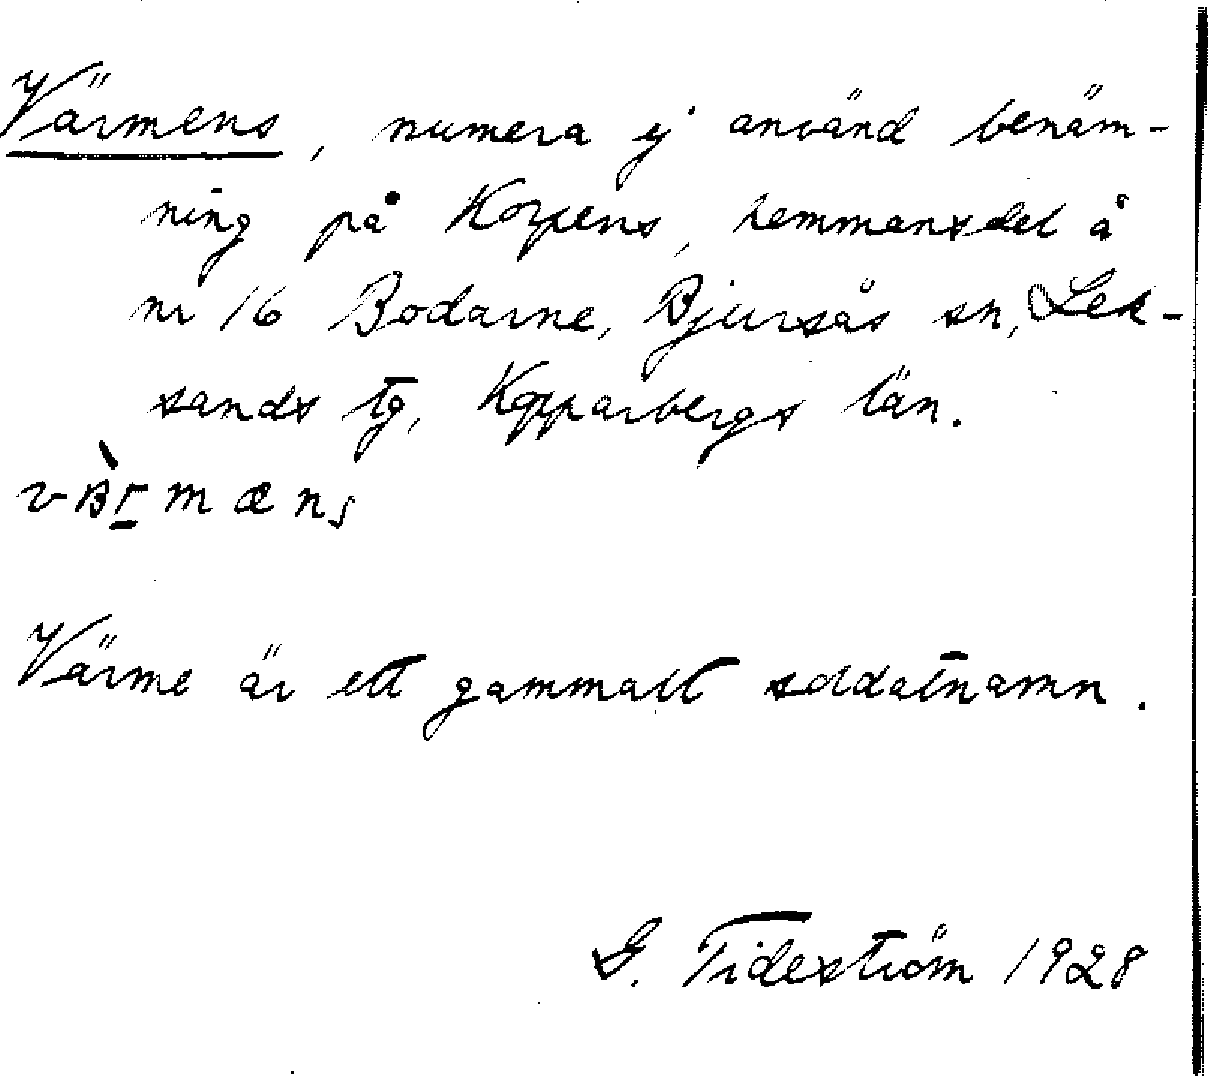 Värmens, numera ej använd benäm-
ning på Korpens, hemmansdel å
nr 16 Bodarne, Bjursås sn, Lek-
sands tg, Kopparbergs län.
Värme är ett gammalt soldatnamn.
G. Tideström 1928